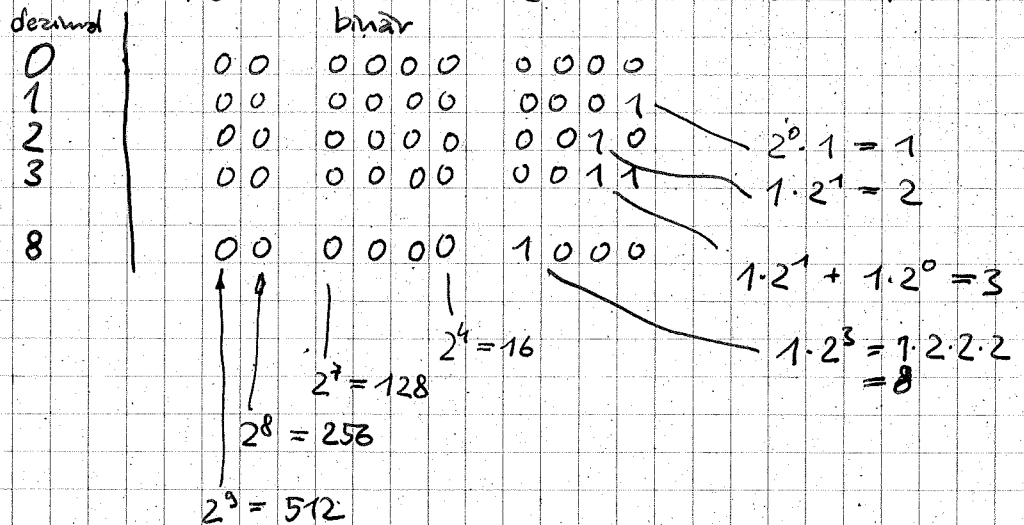 dezimal binär
0 00 0000 0000
1 00 0000 0001
2 00 0000 0010
3 00 0000 0011
8 00 0000 1000
2⁰·1 = 1
1·2¹ = 2
1·2¹ + 1·2⁰ = 3
1·2³ = 1·2·2·2
= 8
2⁴ = 16
2⁷ = 128
2⁸ = 256
2⁹ = 512